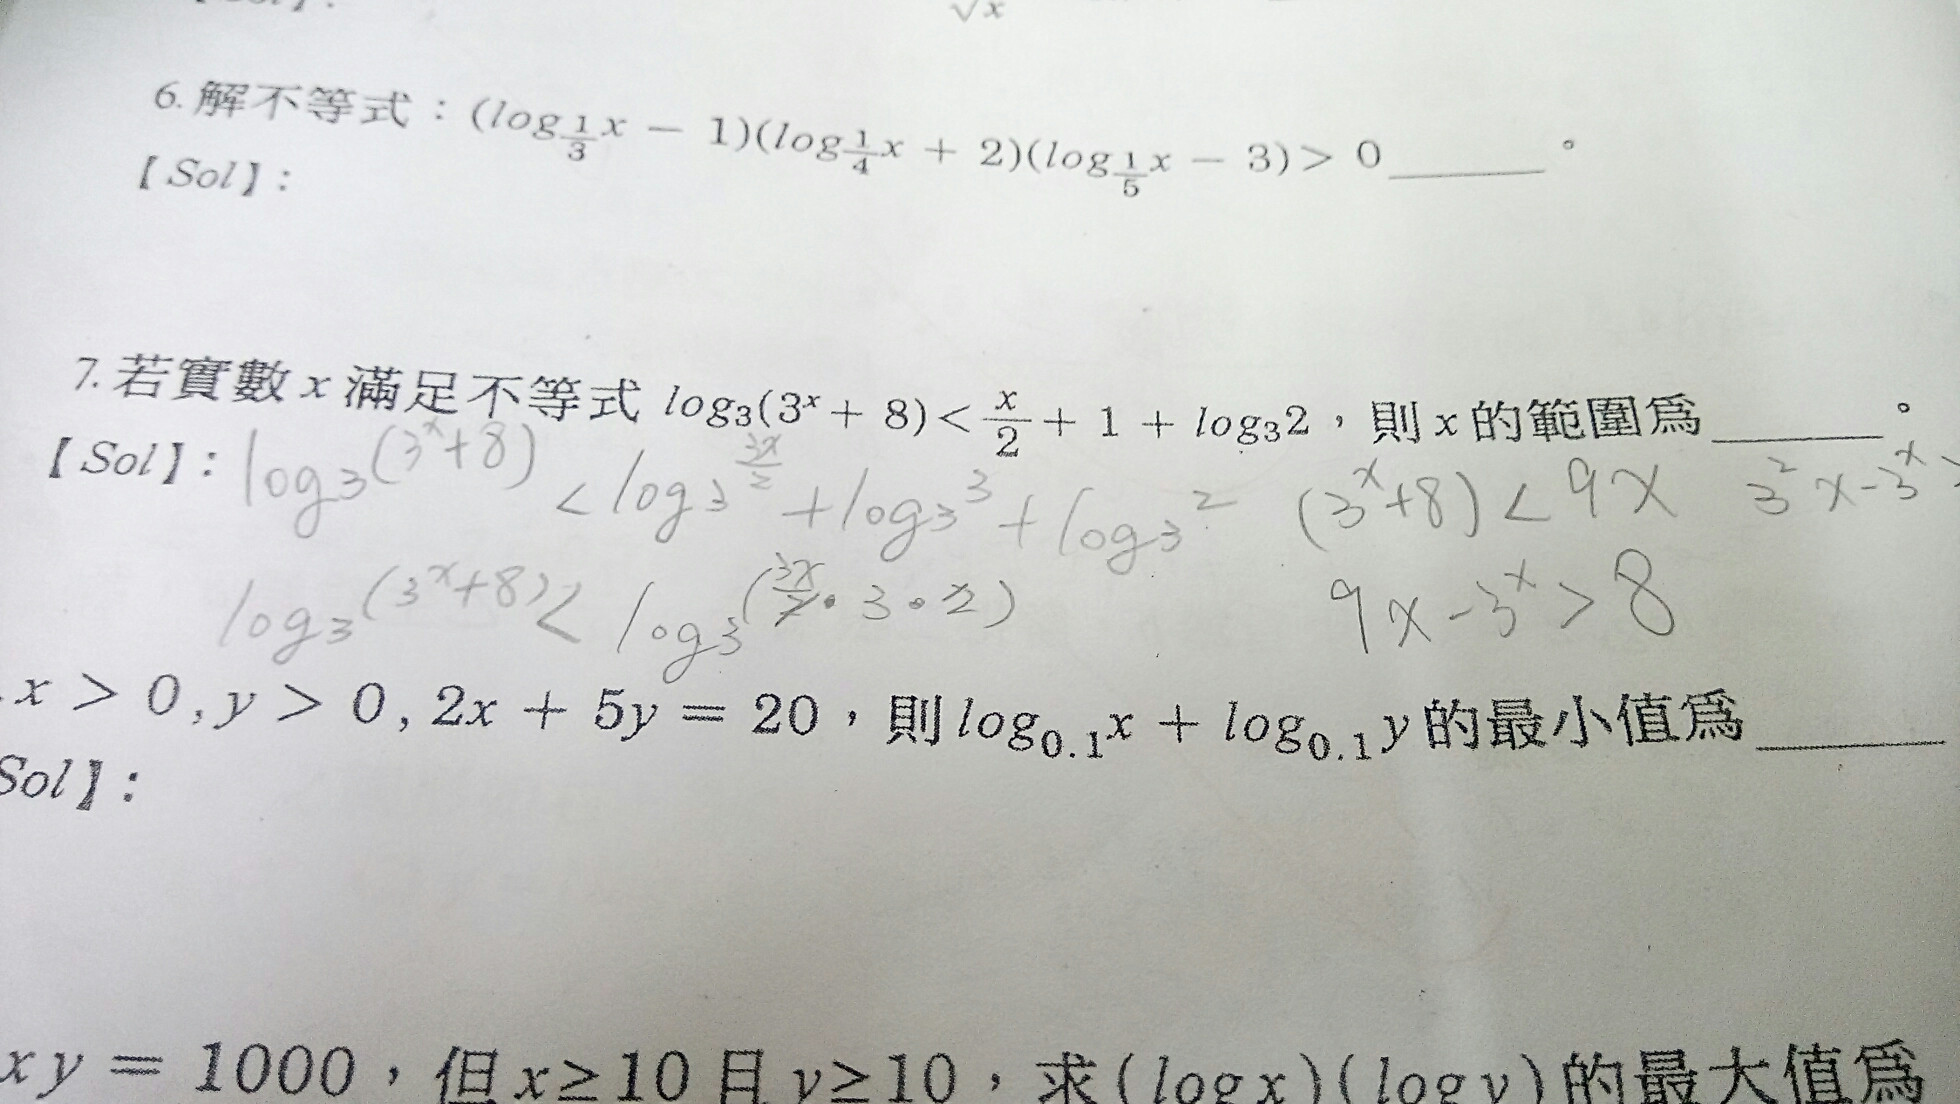 √x
6. 解不等式：(log_{1/3}x − 1)(log_{1/4}x + 2)(log_{1/5}x − 3) > 0______。
【Sol】:
7. 若實數 x 滿足不等式 log₃(3ˣ + 8) < x/2 + 1 + log₃2，則 x 的範圍為______。
【Sol】: log₃(3ˣ+8) < log₃^{3x/2} + log₃³ + log₃² (3ˣ+8) < 9x 3²x − 3ˣ >
log₃(3ˣ+8) < log₃(3x/2 · 3 · 2) 9x − 3ˣ > 8
. x > 0, y > 0, 2x + 5y = 20，則 log₀.₁x + log₀.₁y 的最小值為______
Sol】:
xy = 1000，但 x ≥ 10 且 y ≥ 10，求 (log x)(log y) 的最大值為